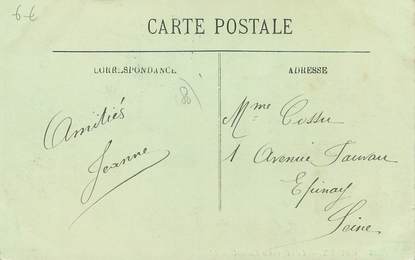 6€
CARTE POSTALE
CORRESPONDANCE
ADRESSE
(80)
Amitiés
Jeanne
Mme Cossu
1 Avenue Sauvau
Epinay
Seine